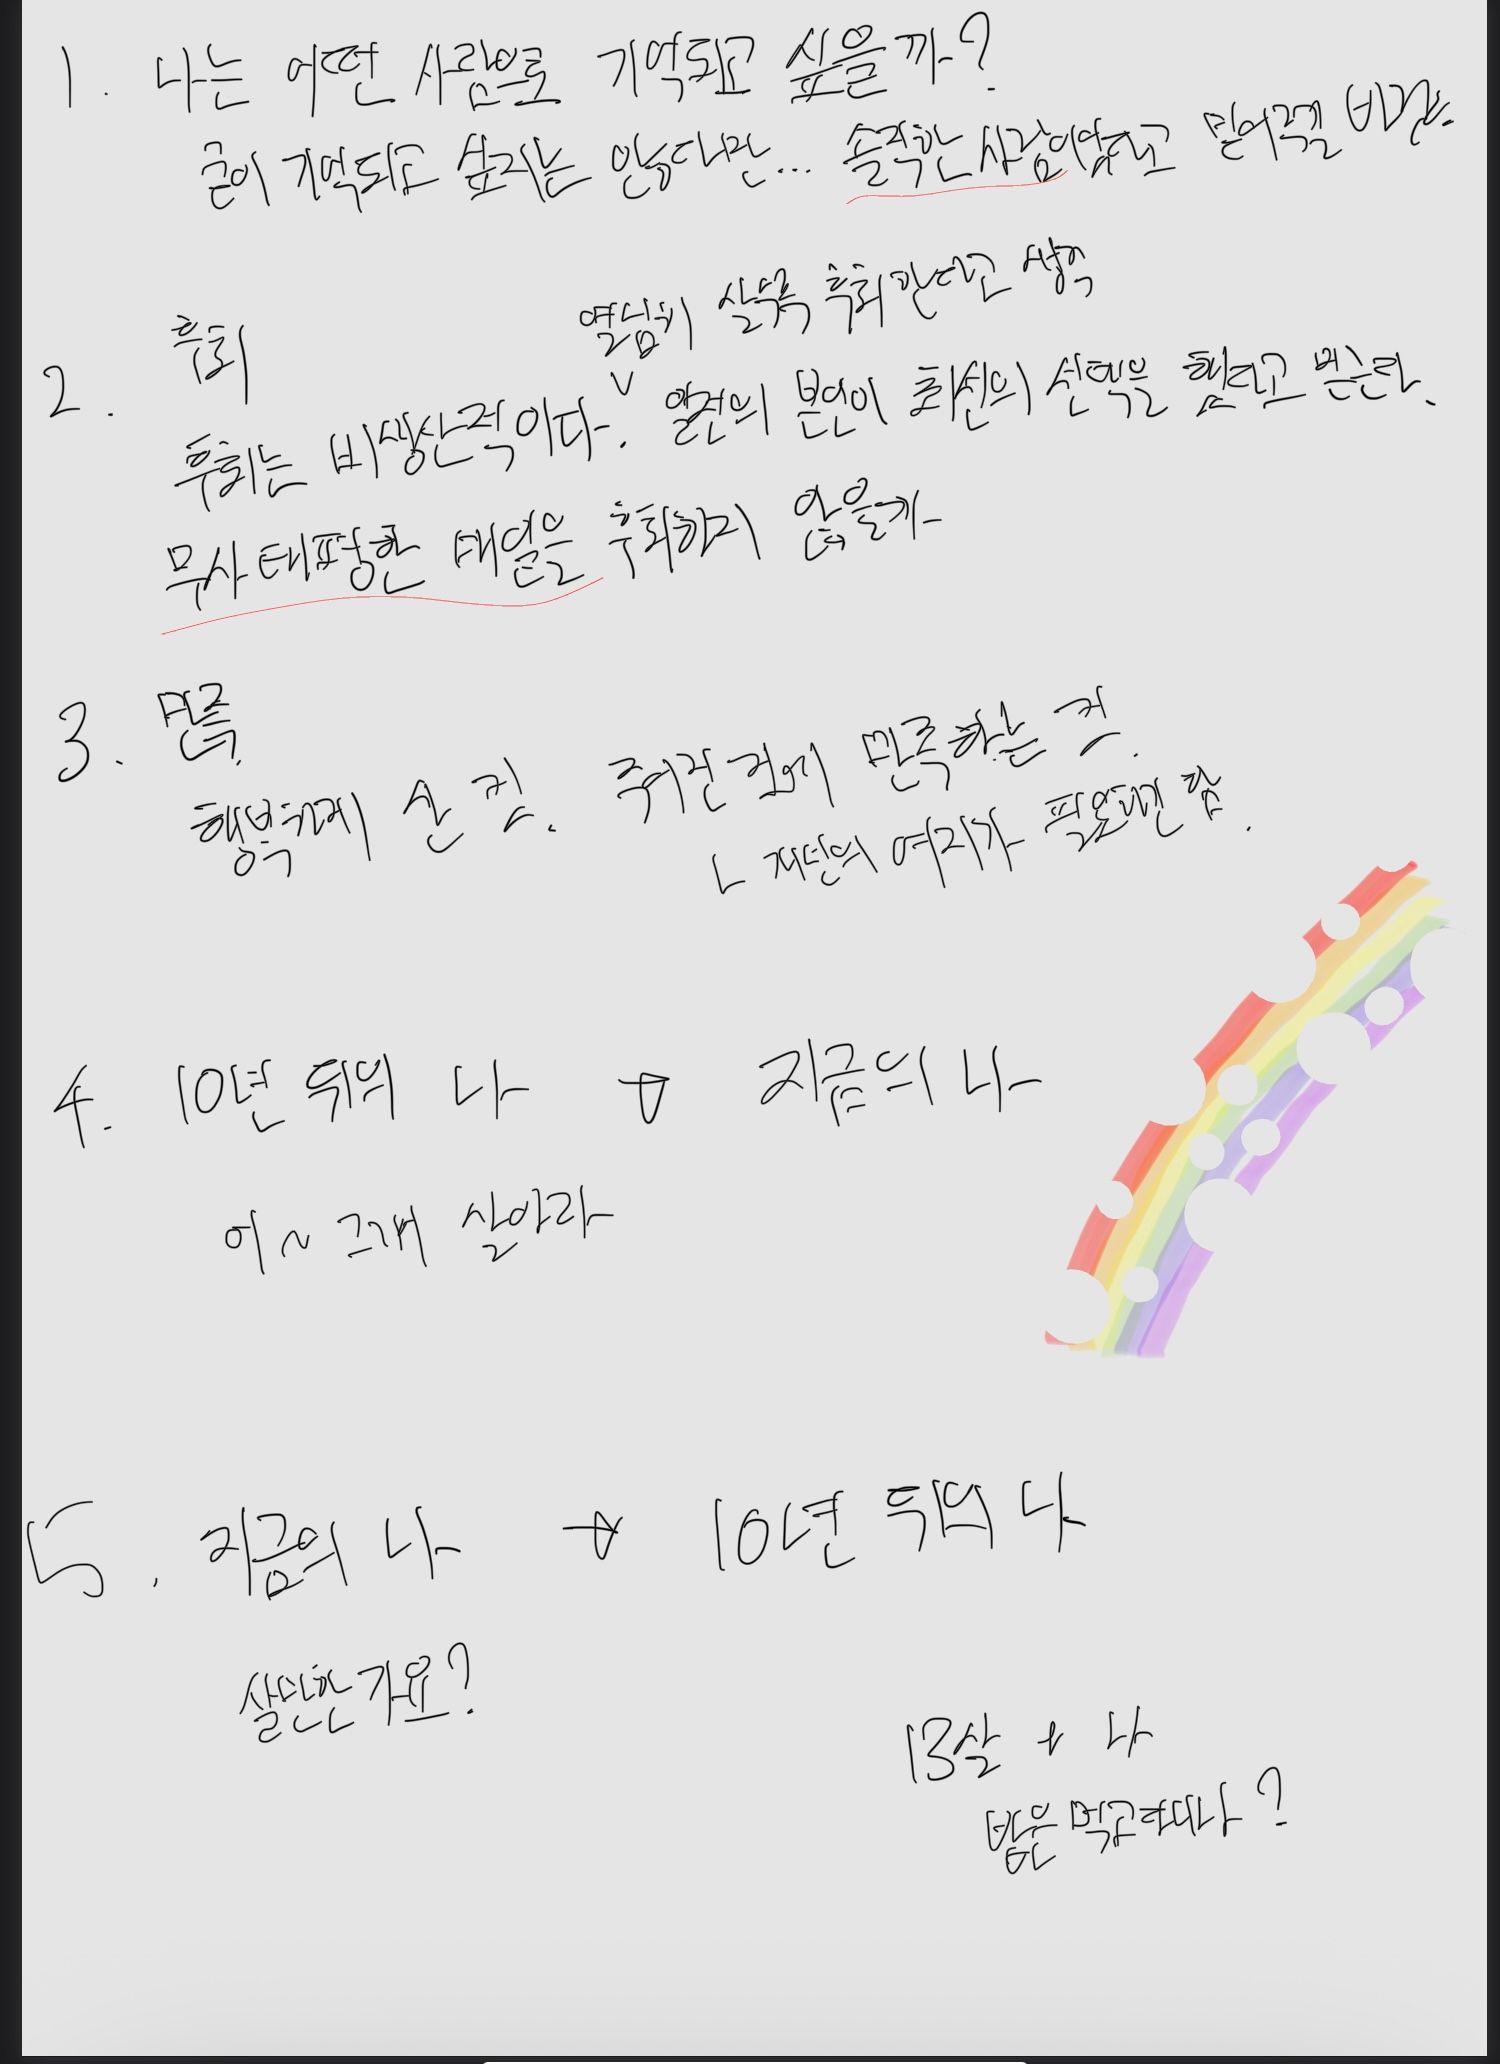 1. 나는 어떤 사람으로 기억되고 싶을까?
굳이 기억되고 싶지는 않다만... 솔직한 사람이었다고 믿어주길 바란다.
2. 후회
열심히 살수록 후회 한다고 생각
후회는 비생산적이다. 알전의 본인이 최선의 선택을 했다고 믿는다.
무사태평한 매일은 후회하지 않을까
3. 만족
행복하게 산 것. 주어진 것에 만족하는 것.
ㄴ 재넌의 여지가 필요하긴 함.
4. 10년 뒤의 나 → 지금의 나
어~ 그래 살아라
5. 지금의 나 → 10년 뒤의 나
살만한가요?
13살 + 나
밥은 먹고다니냐?